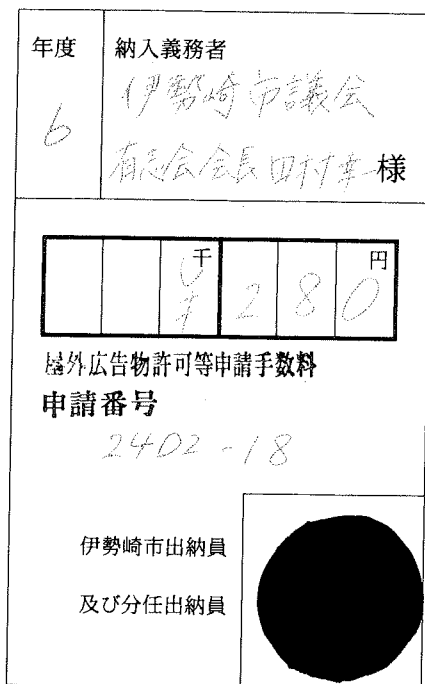 年度
6
納入義務者
伊勢崎市議会
有志会会長田村幸一様
千 円
¥280
屋外広告物許可等申請手数料
申請番号
24D2-18
伊勢崎市出納員
及び分任出納員